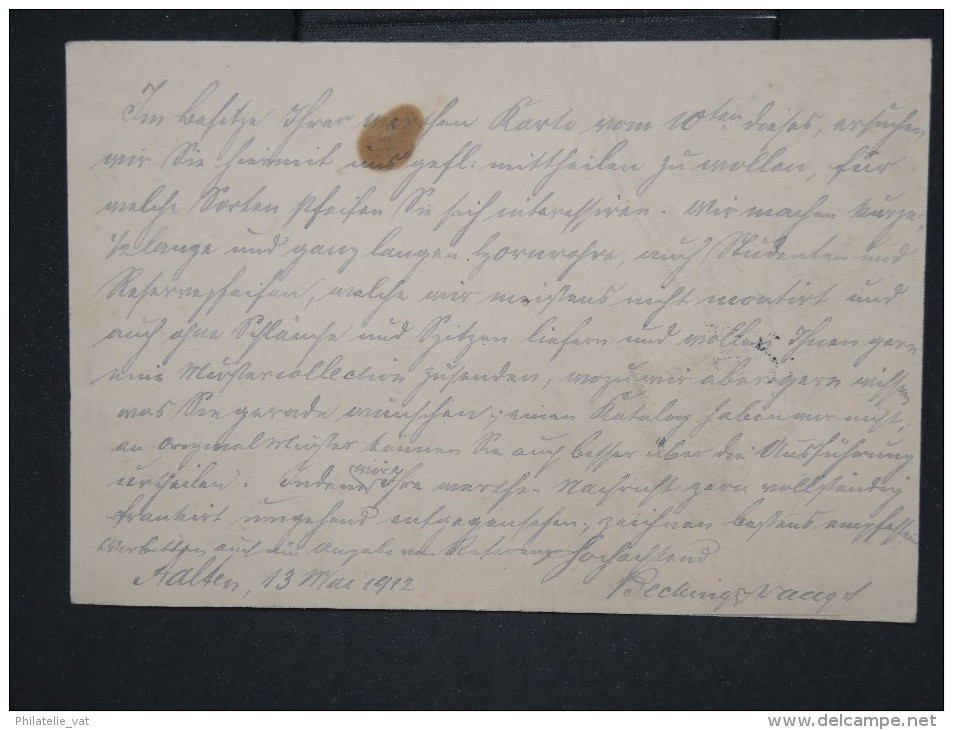 Im Besitze Ihrer werthen Karte vom 10ten dieses, ersuchen
wir Sie hiermit uns gefl. mittheilen zu wollen, für
welche Sorten Pfeifen Sie sich interessiren. Wir machen kurze,
½ lange und ganz lange Hornrohre, auch Studenten und
Reservepfeifen, welche wir meistens nicht montirt und
auch ohne Schläuche und Spitzen liefern und wollen Ihnen gern
eine Mustercollection zusenden, wozu wir aber gern wissen
was Sie gerade wünschen; einen Katalog haben wir nicht;
an Original Muster können Sie auch besser über die Ausführung
urtheilen. Indem wir Ihre werthe Nachricht gern vollständig
frankirt umgehend entgegensehen, zeichnen bestens empfehlend
auch die Angabe von Referenz Hochachtend
Aalten, 13 Mai 1912 Becking & Vaags
Philatelie_vat
http://www.delcampe.net